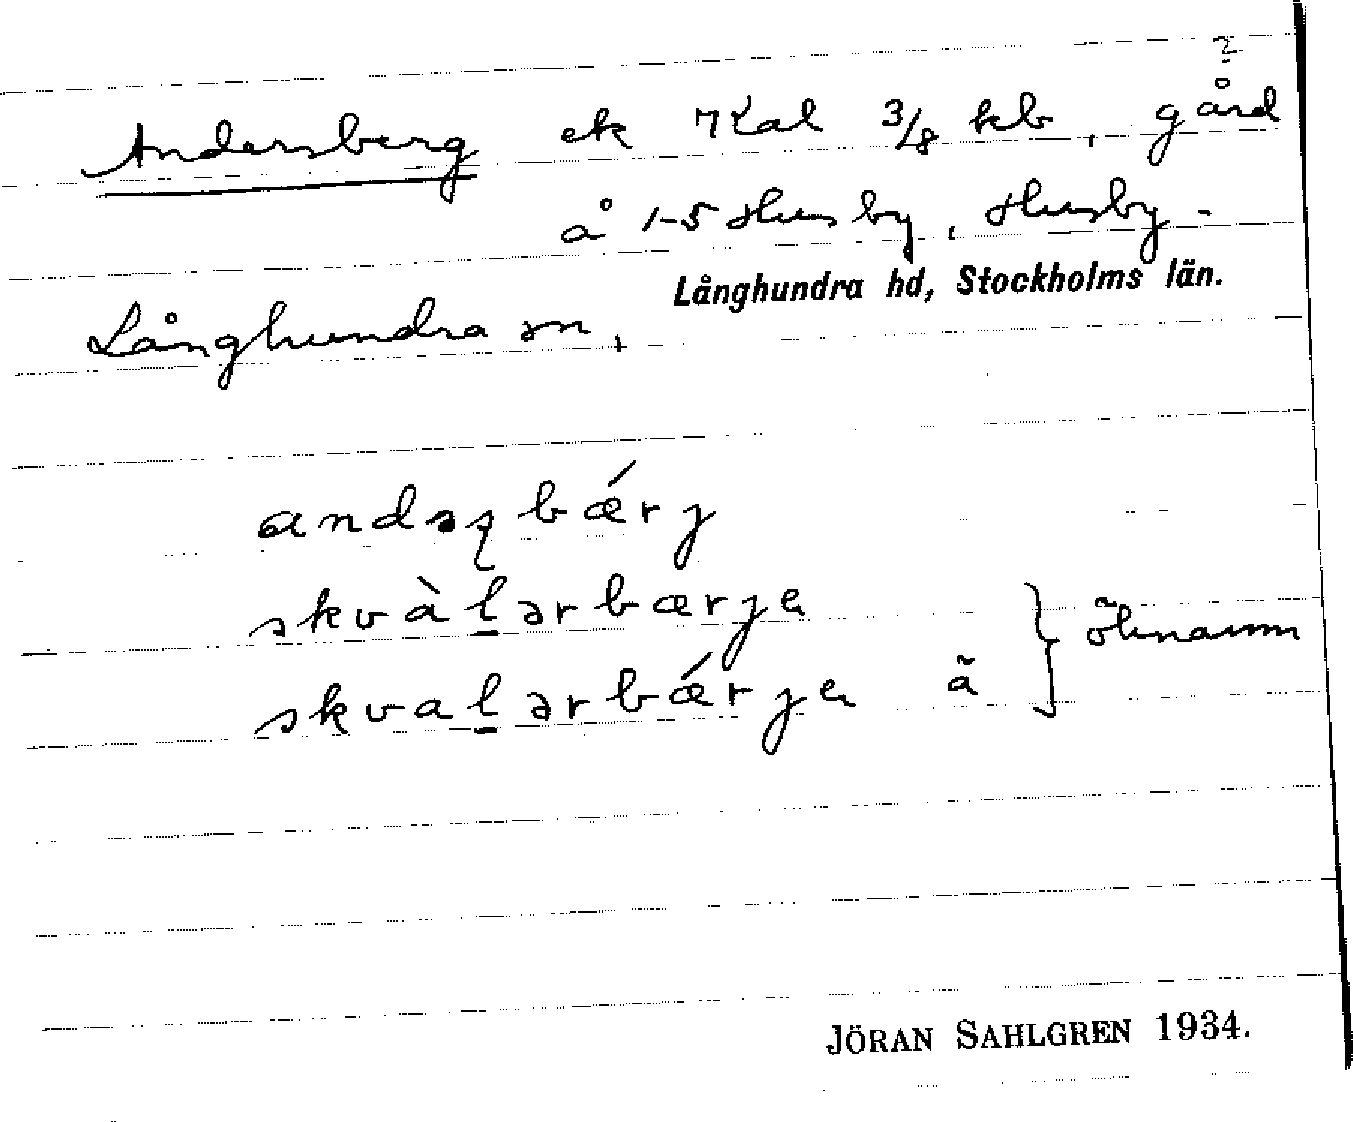 ?
Andersberg ek 7Kal 3/8 kb, gård
å 1-5 Husby, Husby-
Långhundra hd, Stockholms län.
Långhundra sn,
andəʂbǽrj
skvàlərbærjen
skvalərbǽrjen ã } öknamn
JÖRAN SAHLGREN 1934.